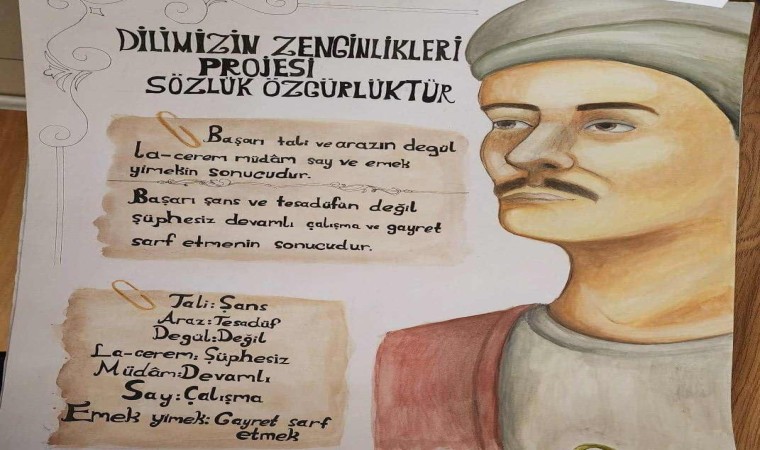 DİLİMİZİN ZENGİNLİKLERİ
PROJESİ
SÖZLÜK ÖZGÜRLÜKTÜR
Başarı tali ve arazın degül
La-cerem müdâm say ve emek
yimekin sonucudur.
Başarı şans ve tesadüfün değil
şüphesiz devamlı çalışma ve gayret
sarf etmenin sonucudur.
Tali: Şans
Araz: Tesadüf
Degül: Değil
La-cerem: Şüphesiz
Müdâm: Devamlı
Say: Çalışma
Emek yimek: Gayret sarf
etmek